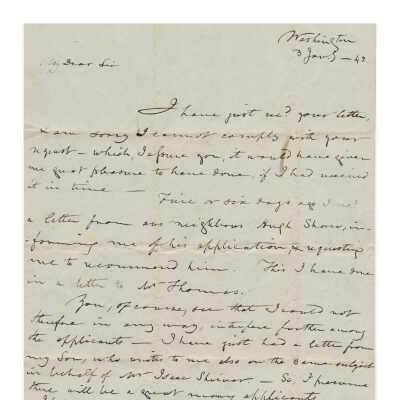 Washington
3 Jany – 42
My Dear Sir
I have just recd your letter,
& am sorry I cannot comply with your
request – which, I assure you, it would have given
me great pleasure to have done, if I had received
it in time – Five or six days ago I recd
a letter from our neighbour Hugh in-
forming me of his application, & requesting
me to recommend him. This I have done
in a letter to Mr Thomas.
You, of course, see that I could not
therefore in any way, interfere further among
the applicants – I have just had a letter from
my Son, who writes to me also on the same subject
in behalf of Mr Isaac – So, I presume
there will be a great many applicants